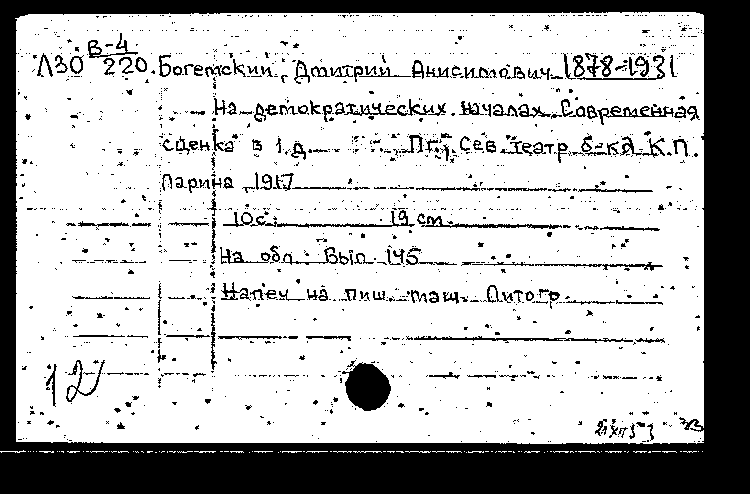 В-4
Л30 220. Богемский, Дмитрий Анисимович 1878-1931
На демократических началах. Современная
сценка в 1 д. Пг., Сев. театр. б-ка К.П.
Ларина, 1917
10 с. 19 см.
На обл.: Вып. 145
Напеч. на пиш. маш. Литогр.
12